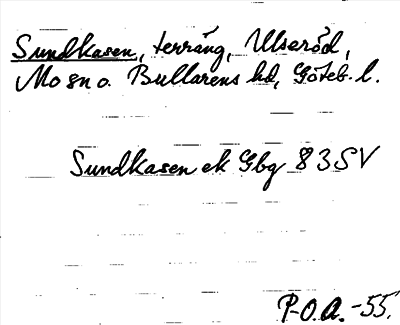 Sundkasen, terräng, Ulseröd,
Mo sn o. Bullarens hd, Göteb. l.
Sundkasen ek Gbg 83SV
P-O.A. -55.